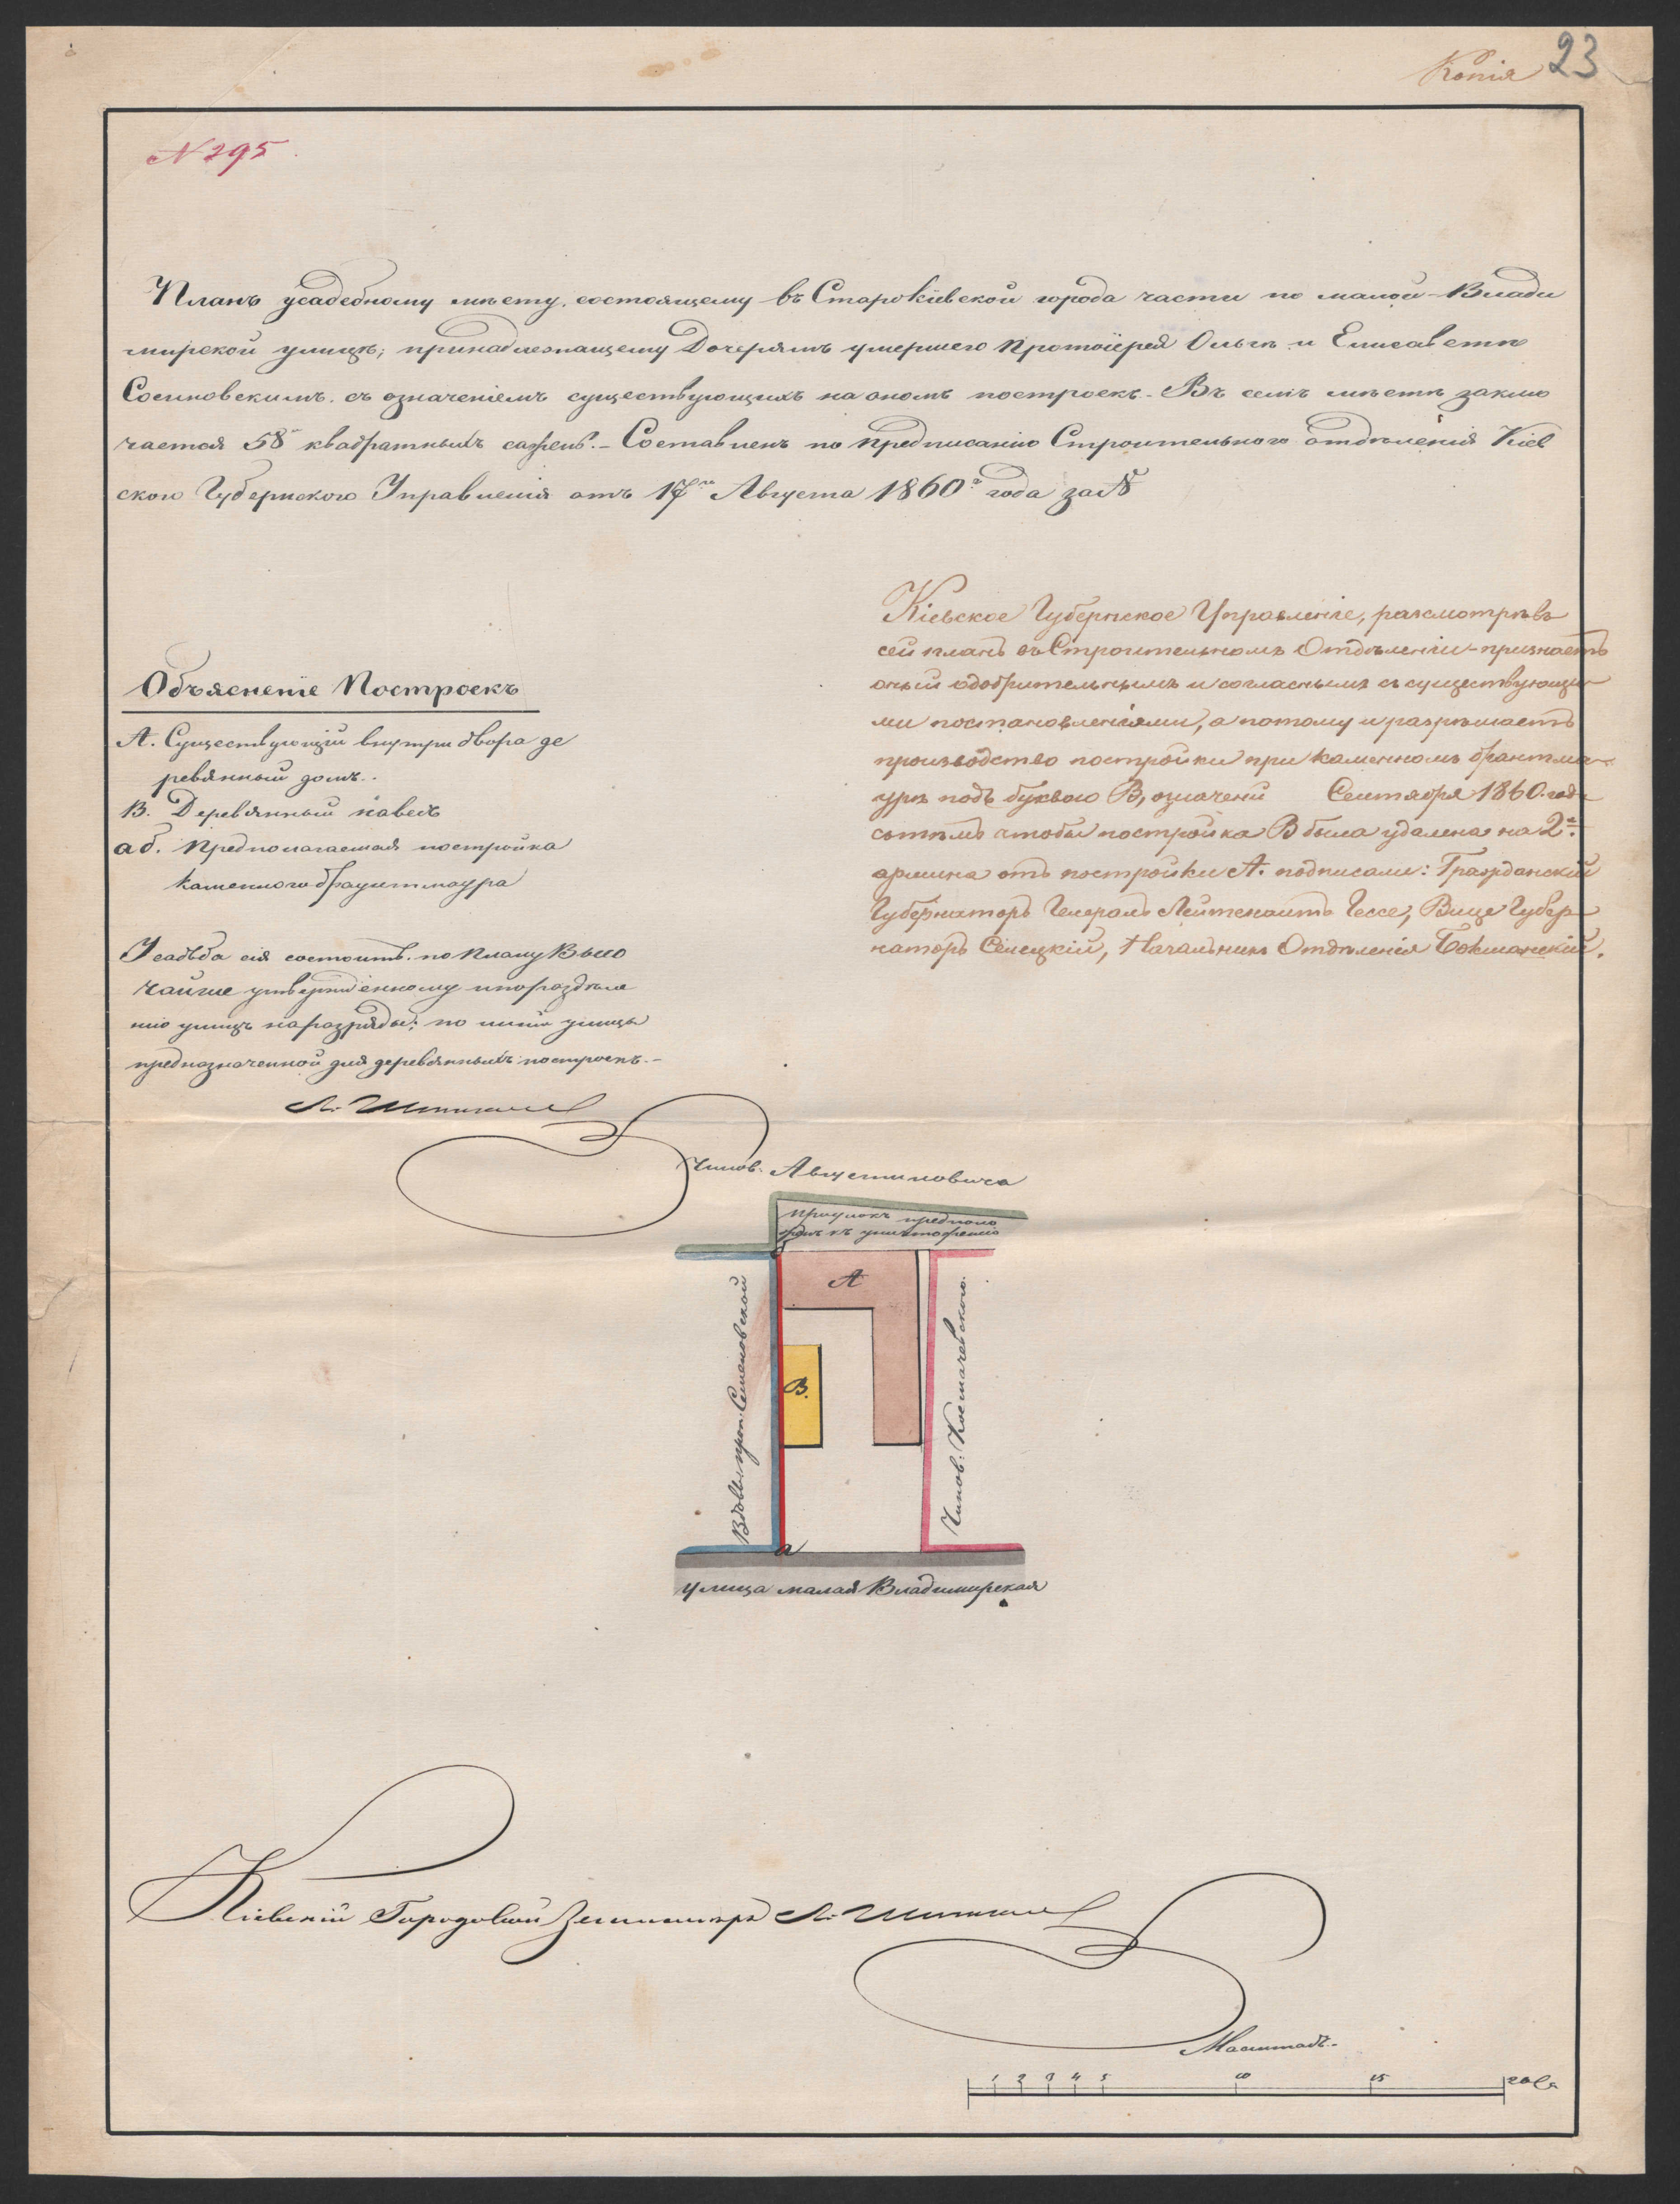 Копія 23
N 295.
Планъ усадебному мѣсту, состоящему въ Старокіевской города части по малой-Влади
мирской улицѣ; принадлежащему Дочерямъ умершего Протоіерея Ольгѣ и Елисаветѣ
съ означеніемъ существующихъ на ономъ построекъ. Въ семъ мѣстѣ заклю
чается 58 квадратныхъ сажень. - Составленъ по предписанію Строительнаго отдѣленія Кіев
скою Губернского Управленія отъ 17го Августа 1860 года за №
Кіевское Губернское Управленіе, разсмотрѣвъ
сей планъ въ Строительномъ Отдѣленіи - признаетъ
оный одобрительнымъ и согласнымъ съ существующи
ми постановленіями, а потому и разрѣшаетъ
производство постройки при каменномъ брантма
урѣ подъ буквою В, Сентября 1860 года
съ тѣмъ чтобы постройка В была удалена на 2
аршина отъ постройки А. подписали: Гражданскій
Губернаторъ Генералъ Лейтенантъ Гессе, Вице Губер
наторъ Селецкій, Начальникъ Отдѣленія
Объясненіе Построекъ
А. Существующій внутри двора де
ревянный домъ.
В. Деревянный навесъ
аб. Предполагаемая постройка
каменного браунтмаура
Усадьба сія состоитъ по плану Высо
чайше утвержденному и по раздѣле
нію улицъ на разряды; по линіи улицы
предназначенной для деревянныхъ построекъ. -
Чинов: Августиновича
проулокъ предполо
женъ къ уничтоженію
б
А
В.
Вдовы прот: Семеновской
Чинов: Костачевского.
а
улица малая Владимирская
Кіевскій Городовой Землемѣръ
Масштабъ.
1 2 3 4 5 10 15 20 Са